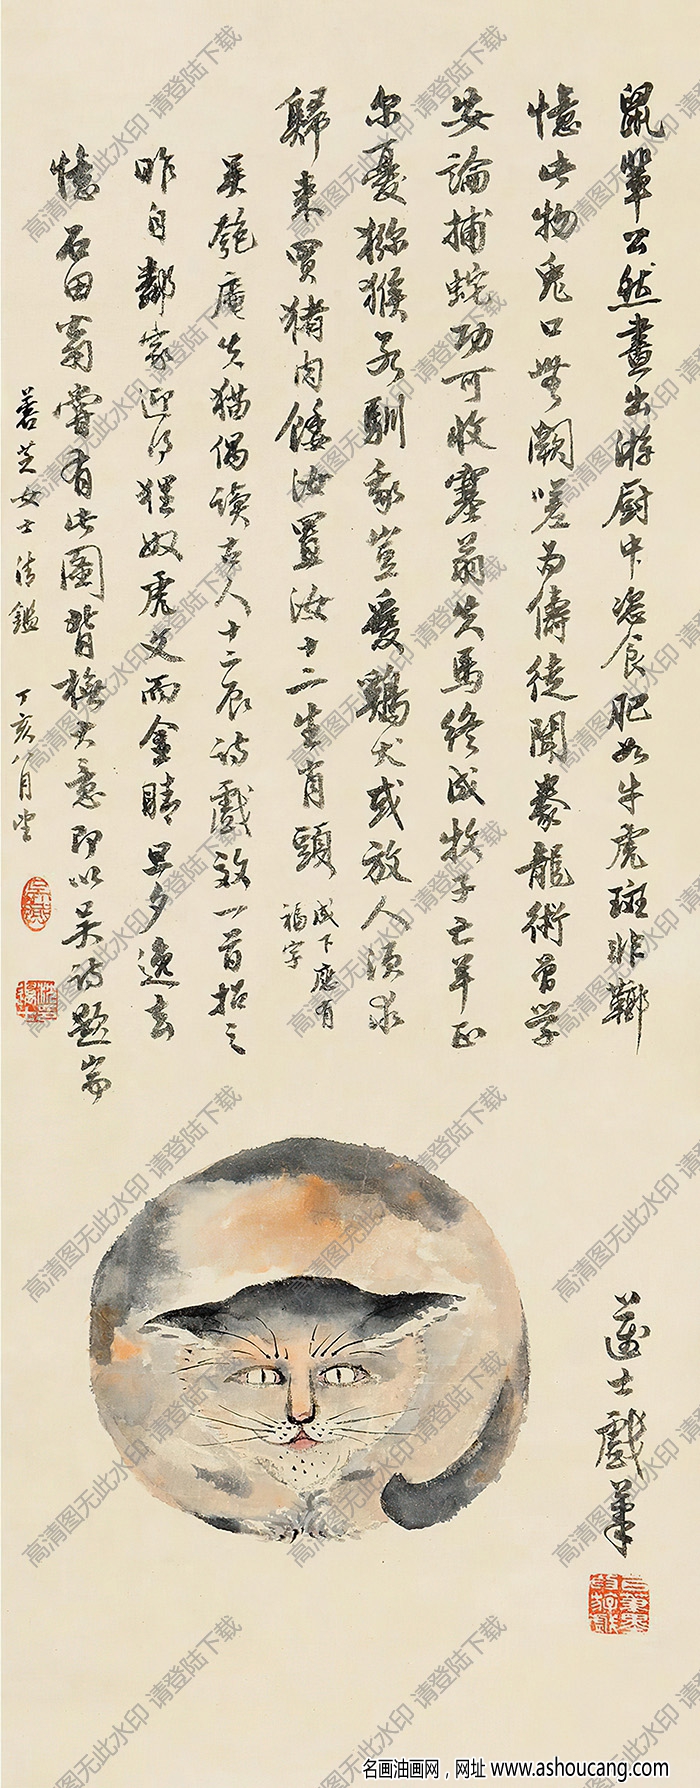 鼠輩公然晝出游厨中恣食肥如牛虎斑非鄰
憶此物兔口無闕嗟為儔徒聞豢龍術曾学
安論捕蛇功可收塞翁失馬終成牧子亡羊正
尔憂獼猴若馴豢豈愛鷄犬或放人須求
歸來買猪肉餧汝置汝十二生肖頭
成下應有
福字
吴匏庵失猫偶讀古人十二辰詩戲效一首招之
昨自鄰家迎得狸奴虎文而金睛旦夕逸去
憶石田翁嘗有此圖背橅大意即以吴詩題耑
善芝女士清鑑 丁亥八月
蘧士戲筆
高清图无此水印 请登陆下载
名画油画网，网址 www.ashoucang.com